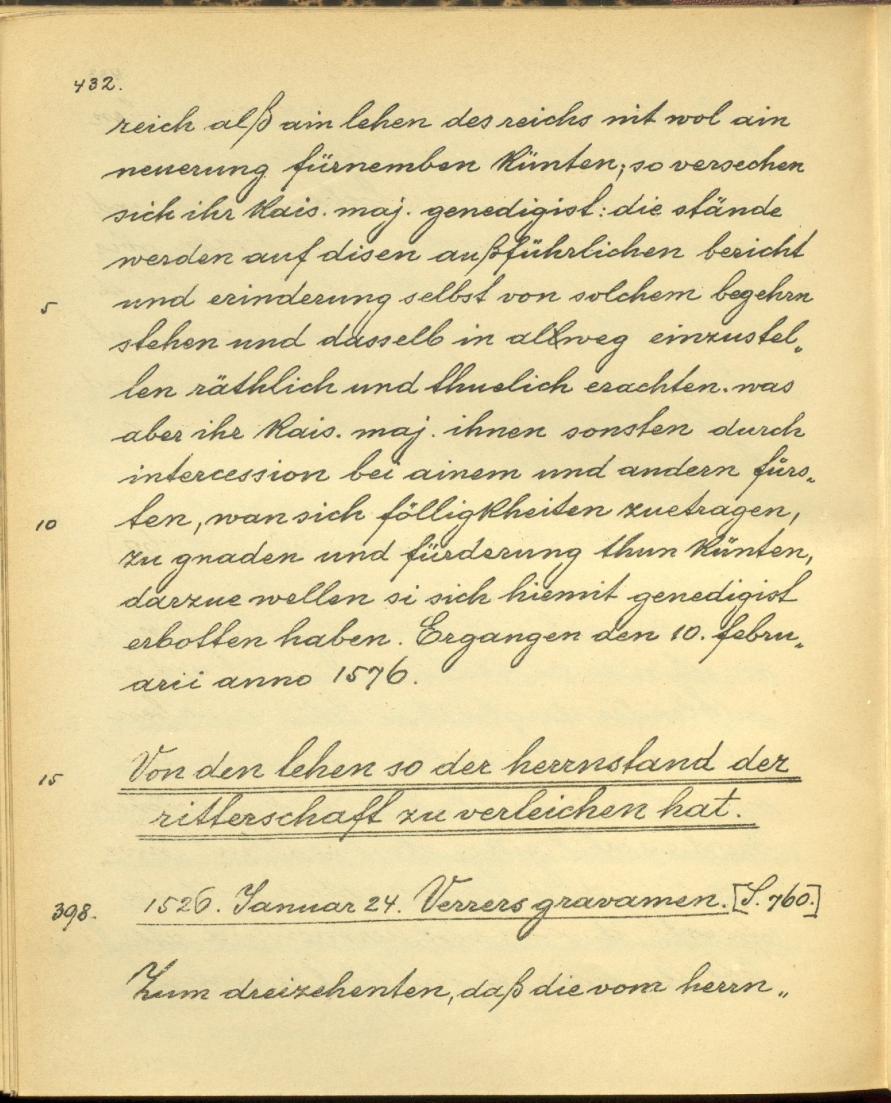 432.
reich alß ain lehen des reichs nit wol ain
neuerung fürnemben künten; so versechen
sich ihr kais. maj. genedigist: die stände
werden auf disen außführlichen bericht
5 und erinderung selbst von solchem begehrn
stehen und dasselb in allweg einzustel„
len räthlich und thuelich erachten. was
aber ihr kais. maj. ihnen sonsten durch
intercession bei ainem und andern fürs„
10 ten, wan sich fölligkheiten zuetragen,
zu gnaden und fürderung thun künten,
darzue wellen si sich hiemit genedigist
erbotten haben. Ergangen den 10. febru„
arii anno 1576.
15 Von den lehen so der herrnstand der
ritterschaft zu verleichen hat.
398. 1526. Januar 24. Verrers gravamen. [S. 760.]
Zum dreizehenten, daß die vom herrn„